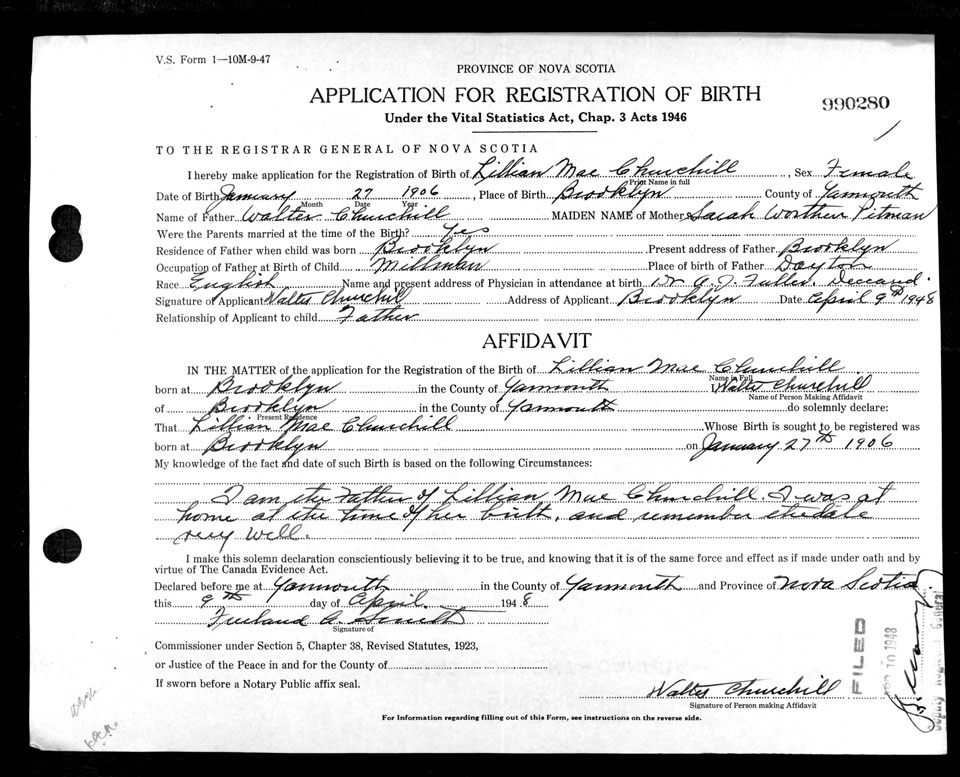 V.S. Form 1—10M-9-47
PROVINCE OF NOVA SCOTIA
APPLICATION FOR REGISTRATION OF BIRTH
990280
Under the Vital Statistics Act, Chap. 3 Acts 1946
TO THE REGISTRAR GENERAL OF NOVA SCOTIA
I hereby make application for the Registration of Birth of Lillian Mae Churchill, Sex Female
Print Name in full
Date of Birth January 27 1906, Place of Birth Brooklyn County of Yarmouth
Month Date Year
Name of Father Walter Churchill MAIDEN NAME of Mother Sarah Worthen Pitman
Were the Parents married at the time of the Birth? Yes
Residence of Father when child was born Brooklyn Present address of Father Brooklyn
Occupation of Father at Birth of Child Millman Place of birth of Father Dayton
Race English Name and present address of Physician in attendance at birth Dr A. J. Fuller, Deceased.
Signature of Applicant Walter Churchill Address of Applicant Brooklyn Date April 9th 1948
Relationship of Applicant to child Father
AFFIDAVIT
IN THE MATTER of the application for the Registration of the Birth of Lillian Mae Churchill
Name in Full
born at Brooklyn in the County of Yarmouth I, Walter Churchill
Name of Person Making Affidavit
of Brooklyn in the County of Yarmouth do solemnly declare:
Present Residence
That Lillian Mae Churchill Whose Birth is sought to be registered was
born at Brooklyn on January 27th 1906
My knowledge of the fact and date of such Birth is based on the following Circumstances:
I am the Father of Lillian Mae Churchill. I was at
home at the time of her birth, and remember the date
very well.
I make this solemn declaration conscientiously believing it to be true, and knowing that it is of the same force and effect as if made under oath and by
virtue of The Canada Evidence Act.
Declared before me at Yarmouth in the County of Yarmouth and Province of Nova Scotia
this 9th day of April 1948
Signature of
Commissioner under Section 5, Chapter 38, Revised Statutes, 1923,
or Justice of the Peace in and for the County of
If sworn before a Notary Public affix seal.
Walter Churchill
Signature of Person making Affidavit
For Information regarding filling out of this Form, see instructions on the reverse side.
FILED
10 1948
Deputy Registrar General